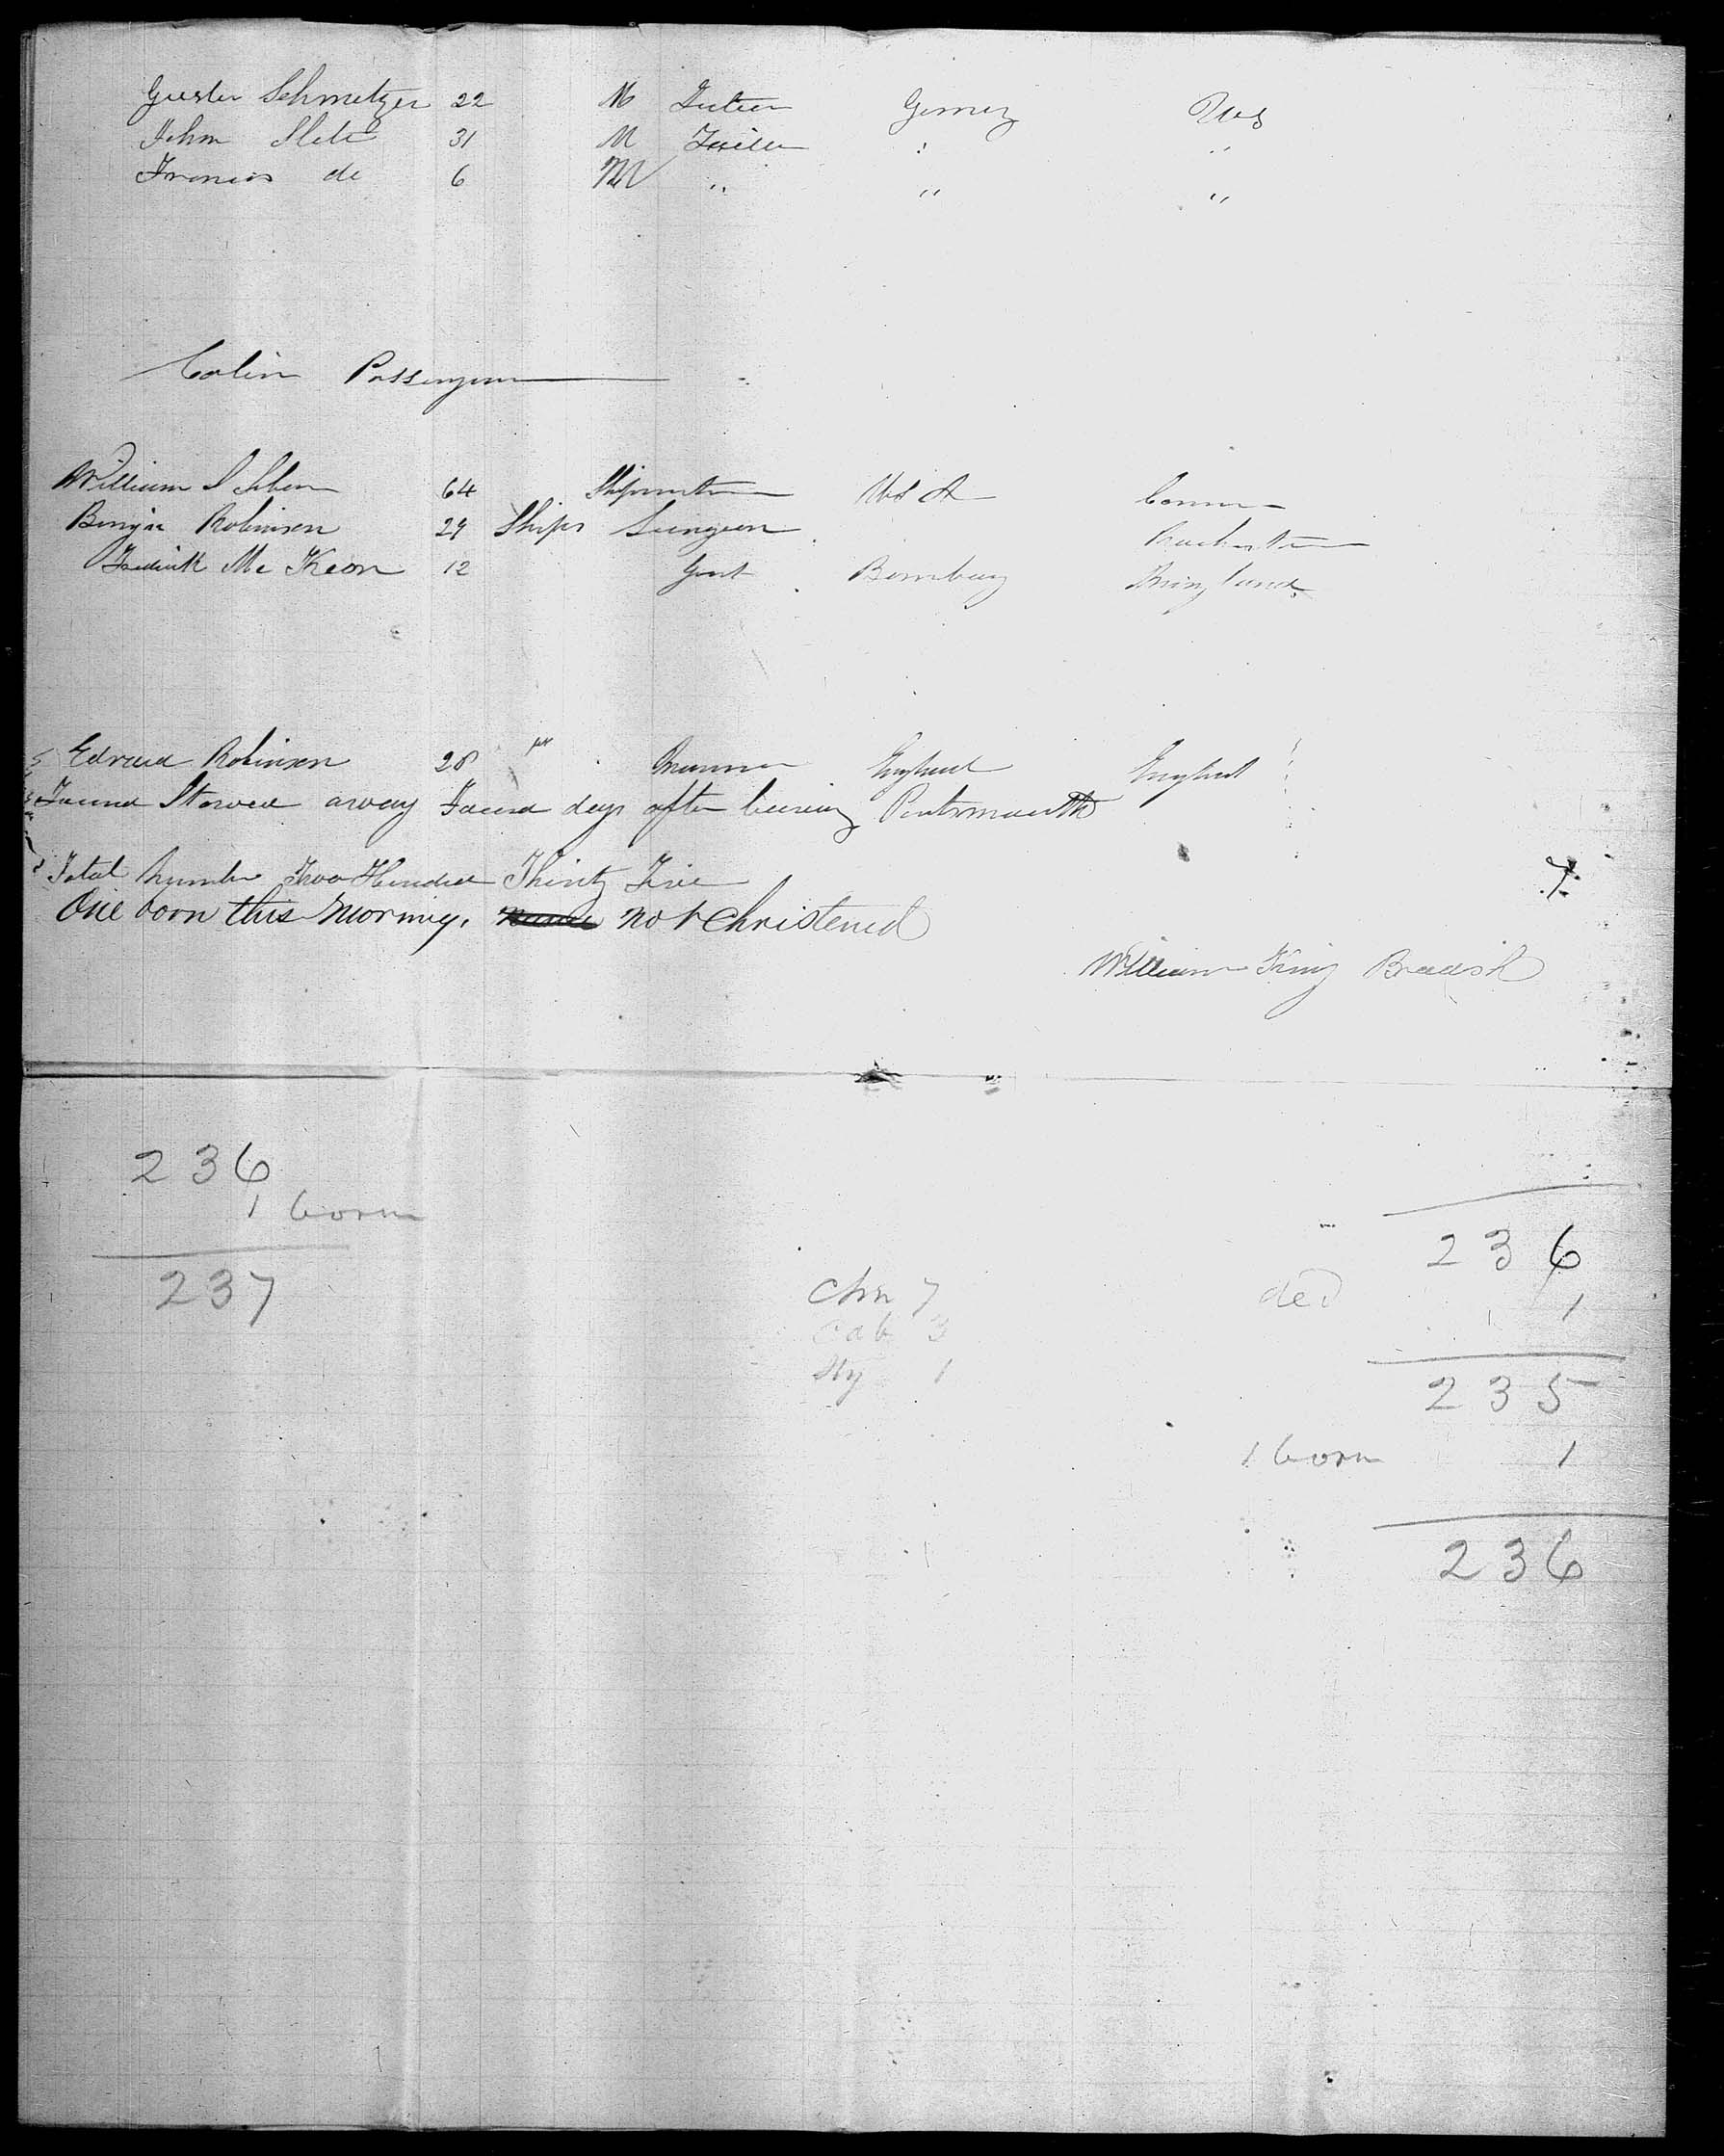 Schmetzer 22 M Germny
John 31 M "
Francis do 6 M " " "
Cabin Passengers
William S 64 Shipmaster U S A
Benjn Robinson 29 Ships Surgeon
Fredrick Mc Keon 12 Gent Bombay
Edward Robinson 28 England England
Found Stowed away Found days after leaving Portsmouth
Total Number Two Hundred Thirty Five
One born this morning. not Christened
William King Bradish
236
1 born
237
236
Chn 7 ded 1
Cab 3
Sty 1
235
1 born 1
236